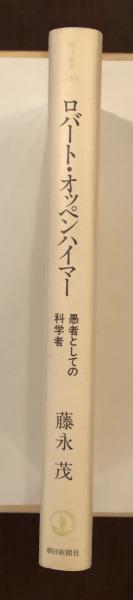 朝日選書
549
ロバート・オッペンハイマー
愚者としての
科学者
藤永 茂
朝日新聞社